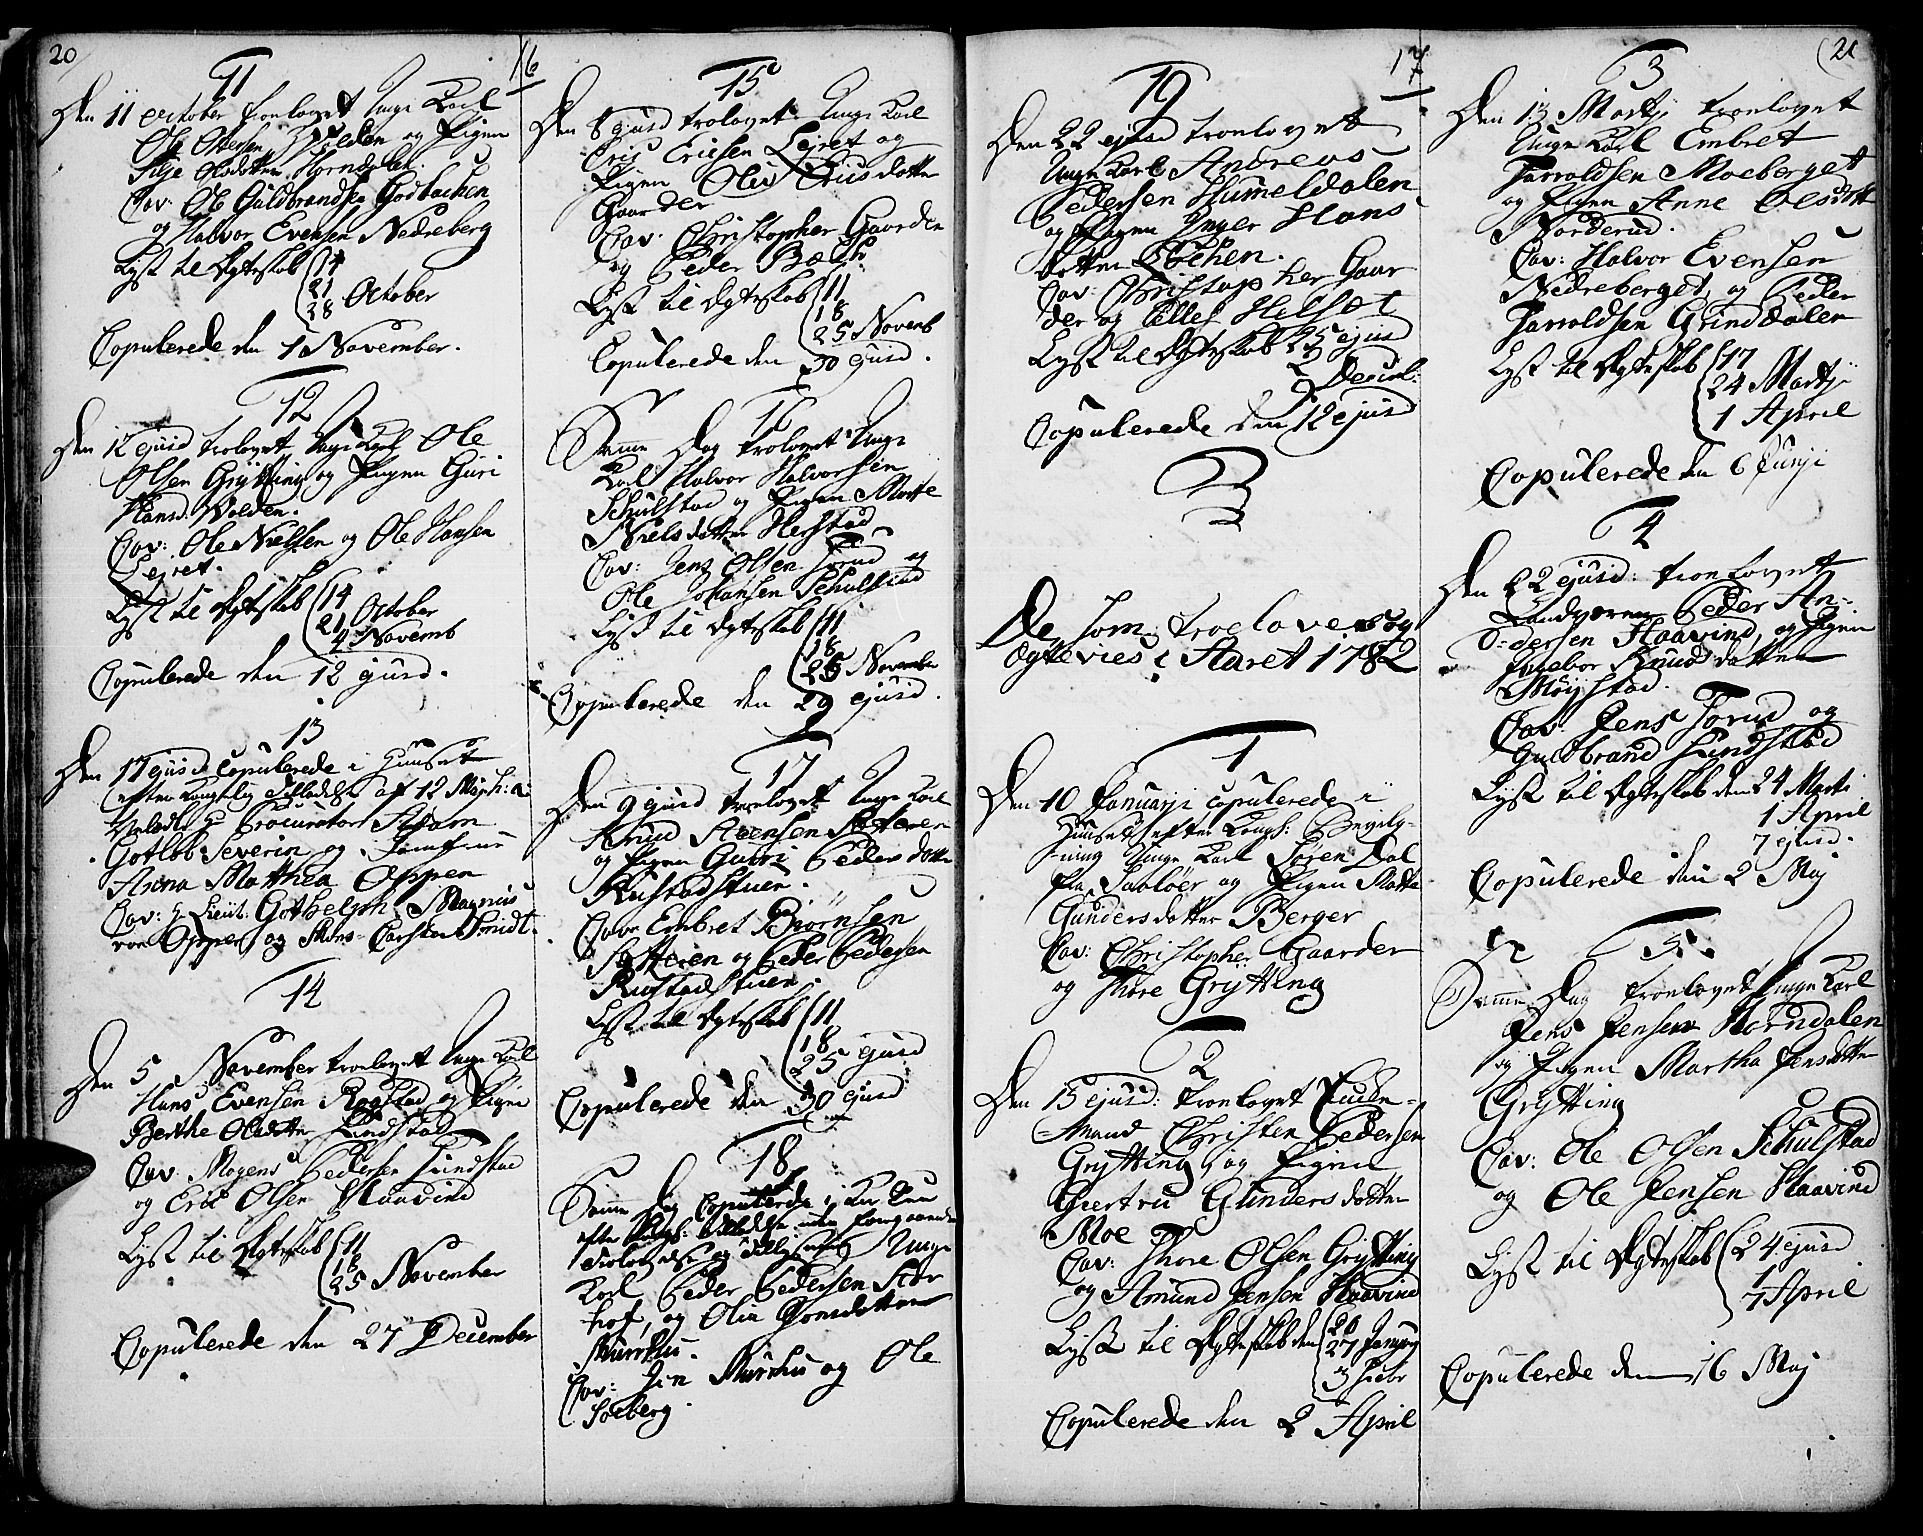 20
16
11
Den 11 October troelovet Unge Karl
Ole Olsen Volden og Pigen
Silje Olsdotter Horndalen.
Cav: Ole Guldbrandsen Godbachen
og Halvor Evensen Nedreberg
Lyst til Ægteskab 14
21
28 October
Copulerede den 1 November.
12
Den 12 ejusd troelovet Unge Karl Ole
Olsen Grÿtting og Pigen Guri
Hansd. Wolden.
Cav: Ole Nielsen og Ole Hansen
Lejret.
Lyst til Ægteskab 14
21 October
4 Novemb
Copulerede den 12 ejusd.
13
Den 17 ejusd copulerede i Huuset
efter Kongelig Tilladelse af 12
Procurator Adam
Gotlob Severin og Jomfrue
Anna Matthea Oppen
Cav: Hr Lieut: Gothelph Magnus
von Oppen og Mons: Carsten Smidt.
14
Den 5 November troelovet Unge Karl
Hans Evensen Rogstad og Pigen
Berthe Olsdotter Lindstad
Cav: Mogens Pedersen Lindstad
og Eric Olsen Haavind
Lyst til Ægteskab 11
18
25 November
Copulerede den 27 December
15
Den 8 ejusd trolovet Unge Karl
Eric Ericsen Lejret og
Pigen Oliv Ericsdotter
Gaarder
Cav: Christopher Gaarder
og Peder Bæch
Lyst til Ægteskab 11
18
25 Novemb
Copulerede den 30 ejusd.
16
Samme Dag trolovet Unge
Karl Halvor Halvorsen
Schulstad og Pigen Marte
Nielsdotter Herstad
Cav: Jens Olsen Torud og
Ole Johansen Schulstad
Lyst til Ægteskab 11
18
25 November
Copulerede den 29 ejusd.
17
Den 9 ejusd troelovet Unge Karl
Knud Steensen Sætteren
og Pigen Guri Pedersdotter
Rustadstuen.
Cav: Embret Biørnsen
Sætteren og Peder Pedersen
Rustadstuen.
Lyst til Ægteskab 11
18
25 ejusd
Copulerede den 30 ejusd
18
Samme Dag Copulerede i Kirken
efter Kongl: Tilladelse uden foregaaende
Trolovelse og Unge
Karl Peder Pedersen Stor
hof, og Olia Gonsdotter
Murshu.
Cav: Jen Murshu og Ole
Soeberg.
17
21
19
Den 22 ejusd troelovet
Unge Karl Andreas
Pedersen Humeldalen
og Pigen Inger Hans
dotter Lochen.
Cav: Christopher Gaar
der og Helset
Lyst til Ægteskab 25 ejusd
2
9 Decemb:
Copulerede den 12 ejusd
De som troeloves og
Ægtevies i Aaret 1782
1
Den 10 Januarji copulerede i
Huuset efter Kongl: Bevilg-
ning Unge Karl Søren Dol
pha Sarløer og Pigen Marte
Gundersdotter Berger
Cav: Christopher Gaarder
og Thore Grÿtting
2
Den 15 ejusd: troelovet Enke-
Mand Christen Pedersen
Grÿtting og Pigen
Giertru Gundersdotter
Moe
Cav: Thore Olsen Grÿtting
og Amund Jensen Haavind
Lyst til Ægteskab den 20
27 Januarj
3 Febr
Copulerede den 2 April
3
Den 13 Martji troelovet
Unge Karl Embret
Haroldsen Moeberget
og Pigen Anne Olsdott
Norderud.
Cav: Halvor Evensen
Nedreberget og Peder
Haroldsen Grinddalen
Lyst til Ægteskab 17
24 Martji
1 April
Copulerede den 6 Junji
4
Den 22 ejusd: troelovet
Landværn Peder An-
dersen Haavind, og Pigen
Ingebor Knudsdotter
Møÿstad.
Cav: Jens Torud og
Gulbrand Lindstad
Lyst til Ægteskab den 24 Marti
1 April
7 ejusd.
Copulerede den 2 Maj
5.
Samme Dag troelovet Unge Karl
Jens Jensen Horndalen
og Pigen Martha Jensdotter
Grÿtting
Cav: Ole Olsen Schulstad
og Ole Jensen Haavind
Lyst til Ægteskab 24 ejusd
1
7 April
Copulerede den 16 Maj